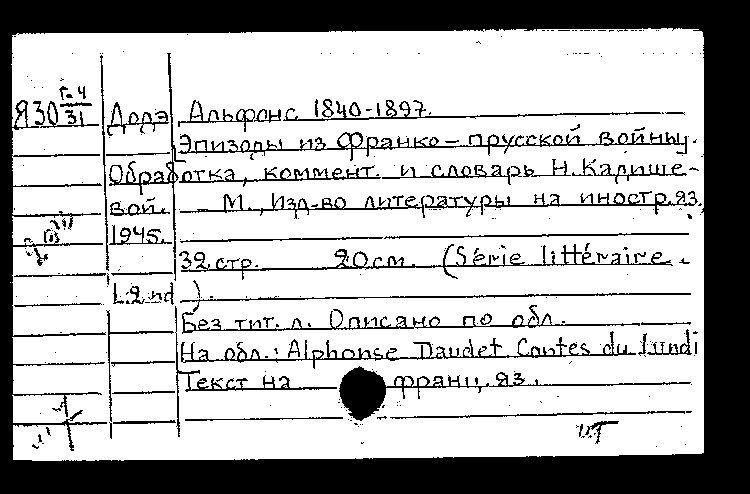 Я30 Г-4/31 Додэ, Альфонс. 1840-1897.
Эпизоды из Франко-прусской войны.
Обработка, коммент. и словарь Н. Кадише-
вой. М., Изд-во литературы на иностр. яз.,
1945.
32 стр. 20 см. (Série littéraire.
).
Без тит. л. Описано по обл.
На обл.: Alphonse Daudet Contes du lundi
Текст на франц. яз.